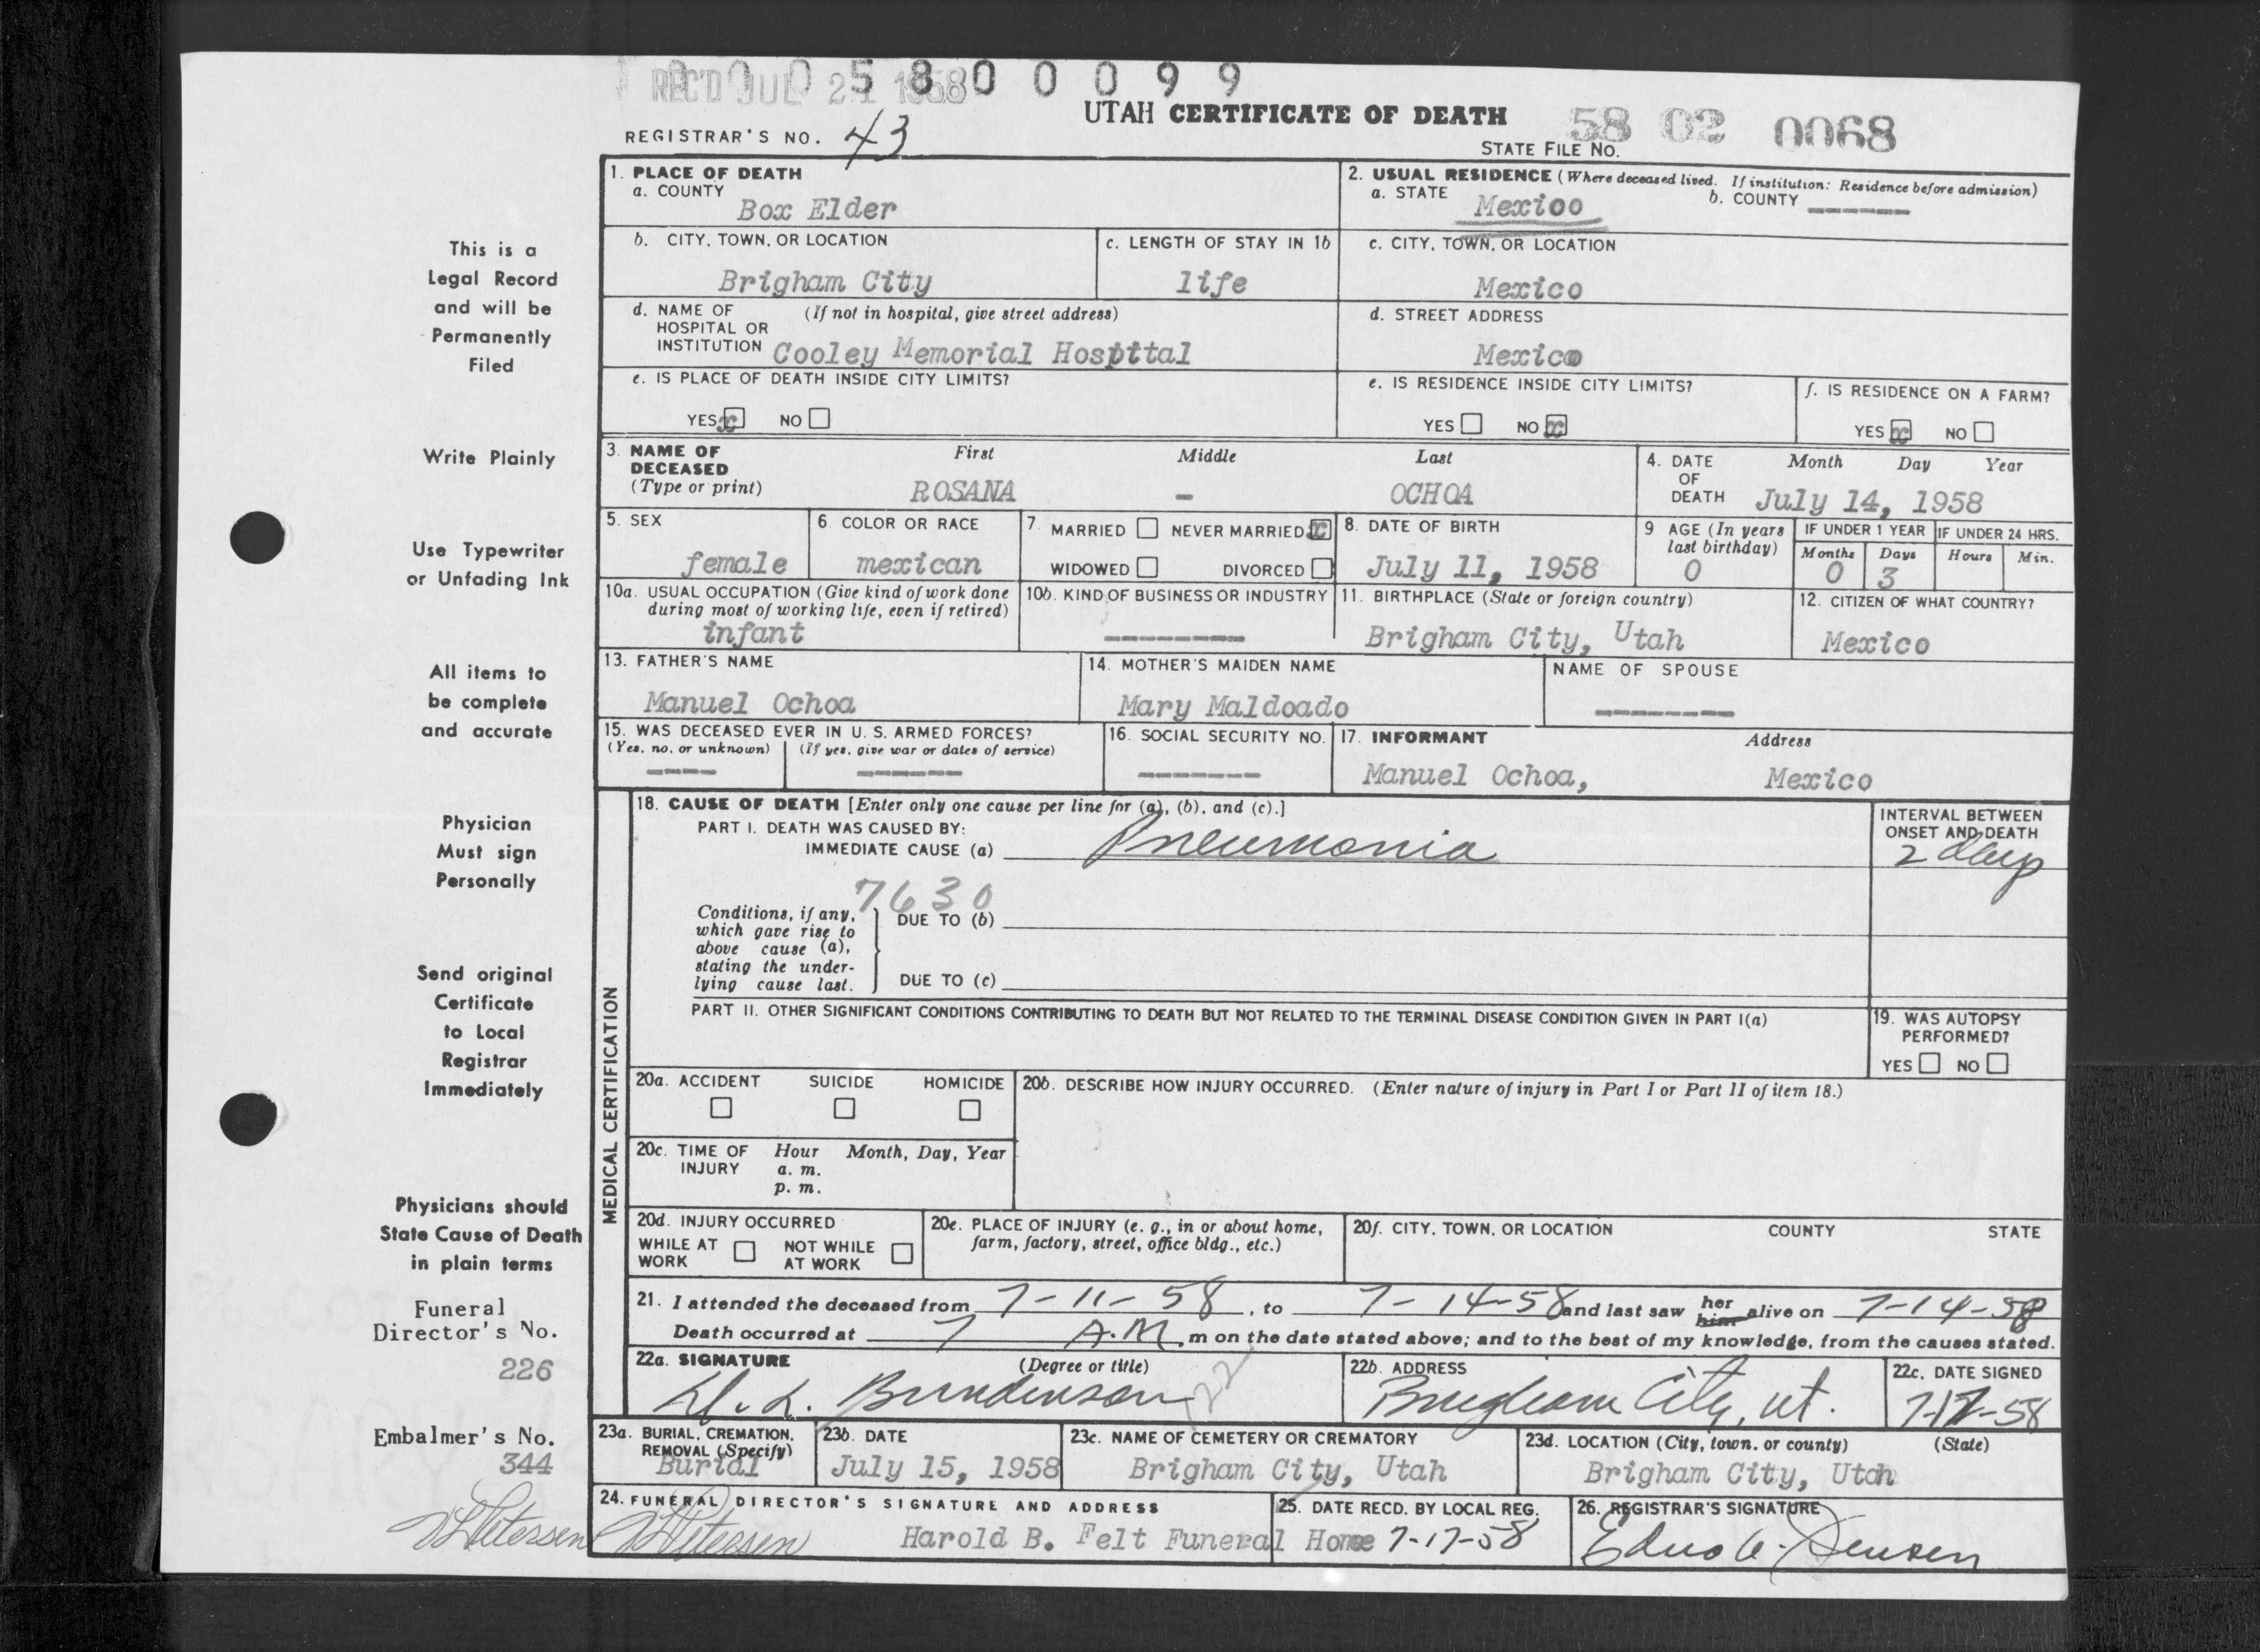 REC'D JUL 21 1958
0 0 0 5 8 0 0 0 9 9
UTAH CERTIFICATE OF DEATH
58 02 0068
REGISTRAR'S NO. 43
STATE FILE NO.
This is a
Legal Record
and will be
Permanently
Filed
Write Plainly
Use Typewriter
or Unfading Ink
All items to
be complete
and accurate
Physician
Must sign
Personally
Send original
Certificate
to Local
Registrar
Immediately
Physicians should
State Cause of Death
in plain terms
Funeral
Director's No.
226
Embalmer's No.
344
1. PLACE OF DEATH
a. COUNTY
Box Elder
2. USUAL RESIDENCE (Where deceased lived. If institution: Residence before admission)
a. STATE Mexico b. COUNTY -----
b. CITY, TOWN, OR LOCATION
Brigham City
c. LENGTH OF STAY IN 1b
life
c. CITY, TOWN, OR LOCATION
Mexico
d. NAME OF (If not in hospital, give street address)
HOSPITAL OR
INSTITUTION Cooley Memorial Hospttal
d. STREET ADDRESS
Mexico
e. IS PLACE OF DEATH INSIDE CITY LIMITS?
YES x NO
e. IS RESIDENCE INSIDE CITY LIMITS?
YES NO x
f. IS RESIDENCE ON A FARM?
YES x NO
3. NAME OF DECEASED (Type or print)
First Middle Last
ROSANA - OCHOA
4. DATE OF DEATH Month Day Year
July 14, 1958
5. SEX
female
6. COLOR OR RACE
mexican
7. MARRIED NEVER MARRIED x
WIDOWED DIVORCED
8. DATE OF BIRTH
July 11, 1958
9 AGE (In years last birthday)
0
IF UNDER 1 YEAR IF UNDER 24 HRS.
Months Days Hours Min.
0 3
10a. USUAL OCCUPATION (Give kind of work done
during most of working life, even if retired)
infant
10b. KIND OF BUSINESS OR INDUSTRY
-------
11. BIRTHPLACE (State or foreign country)
Brigham City, Utah
12. CITIZEN OF WHAT COUNTRY?
Mexico
13. FATHER'S NAME
Manuel Ochoa
14. MOTHER'S MAIDEN NAME
Mary Maldoado
NAME OF SPOUSE
-------
15. WAS DECEASED EVER IN U. S. ARMED FORCES?
(Yes, no, or unknown) (If yes, give war or dates of service)
---- ------
16. SOCIAL SECURITY NO.
-------
17. INFORMANT Address
Manuel Ochoa, Mexico
MEDICAL CERTIFICATION
18. CAUSE OF DEATH [Enter only one cause per line for (a), (b), and (c).]
PART I. DEATH WAS CAUSED BY:
IMMEDIATE CAUSE (a) Pneumonia
INTERVAL BETWEEN
ONSET AND DEATH
2 days
7630
Conditions, if any,
which gave rise to
above cause (a),
stating the under-
lying cause last.
DUE TO (b)
DUE TO (c)
PART II. OTHER SIGNIFICANT CONDITIONS CONTRIBUTING TO DEATH BUT NOT RELATED TO THE TERMINAL DISEASE CONDITION GIVEN IN PART I(a)
19. WAS AUTOPSY
PERFORMED?
YES NO
20a. ACCIDENT SUICIDE HOMICIDE
20b. DESCRIBE HOW INJURY OCCURRED. (Enter nature of injury in Part I or Part II of item 18.)
20c. TIME OF INJURY Hour Month, Day, Year
a. m.
p. m.
20d. INJURY OCCURRED
WHILE AT WORK NOT WHILE AT WORK
20e. PLACE OF INJURY (e. g., in or about home,
farm, factory, street, office bldg., etc.)
20f. CITY, TOWN, OR LOCATION COUNTY STATE
21. I attended the deceased from 7-11-58, to 7-14-58 and last saw her him alive on 7-14-58
Death occurred at 7 A.M. m on the date stated above; and to the best of my knowledge, from the causes stated.
22a. SIGNATURE (Degree or title)
22b. ADDRESS
Brigham City, Ut.
22c. DATE SIGNED
7-17-58
23a. BURIAL, CREMATION,
REMOVAL (Specify)
Burial
23b. DATE
July 15, 1958
23c. NAME OF CEMETERY OR CREMATORY
Brigham City, Utah
23d. LOCATION (City, town, or county) (State)
Brigham City, Utah
24. FUNERAL DIRECTOR'S SIGNATURE AND ADDRESS
Petersen Petersen Harold B. Felt Funeral Home
25. DATE RECD. BY LOCAL REG.
7-17-58
26. REGISTRAR'S SIGNATURE
Jensen